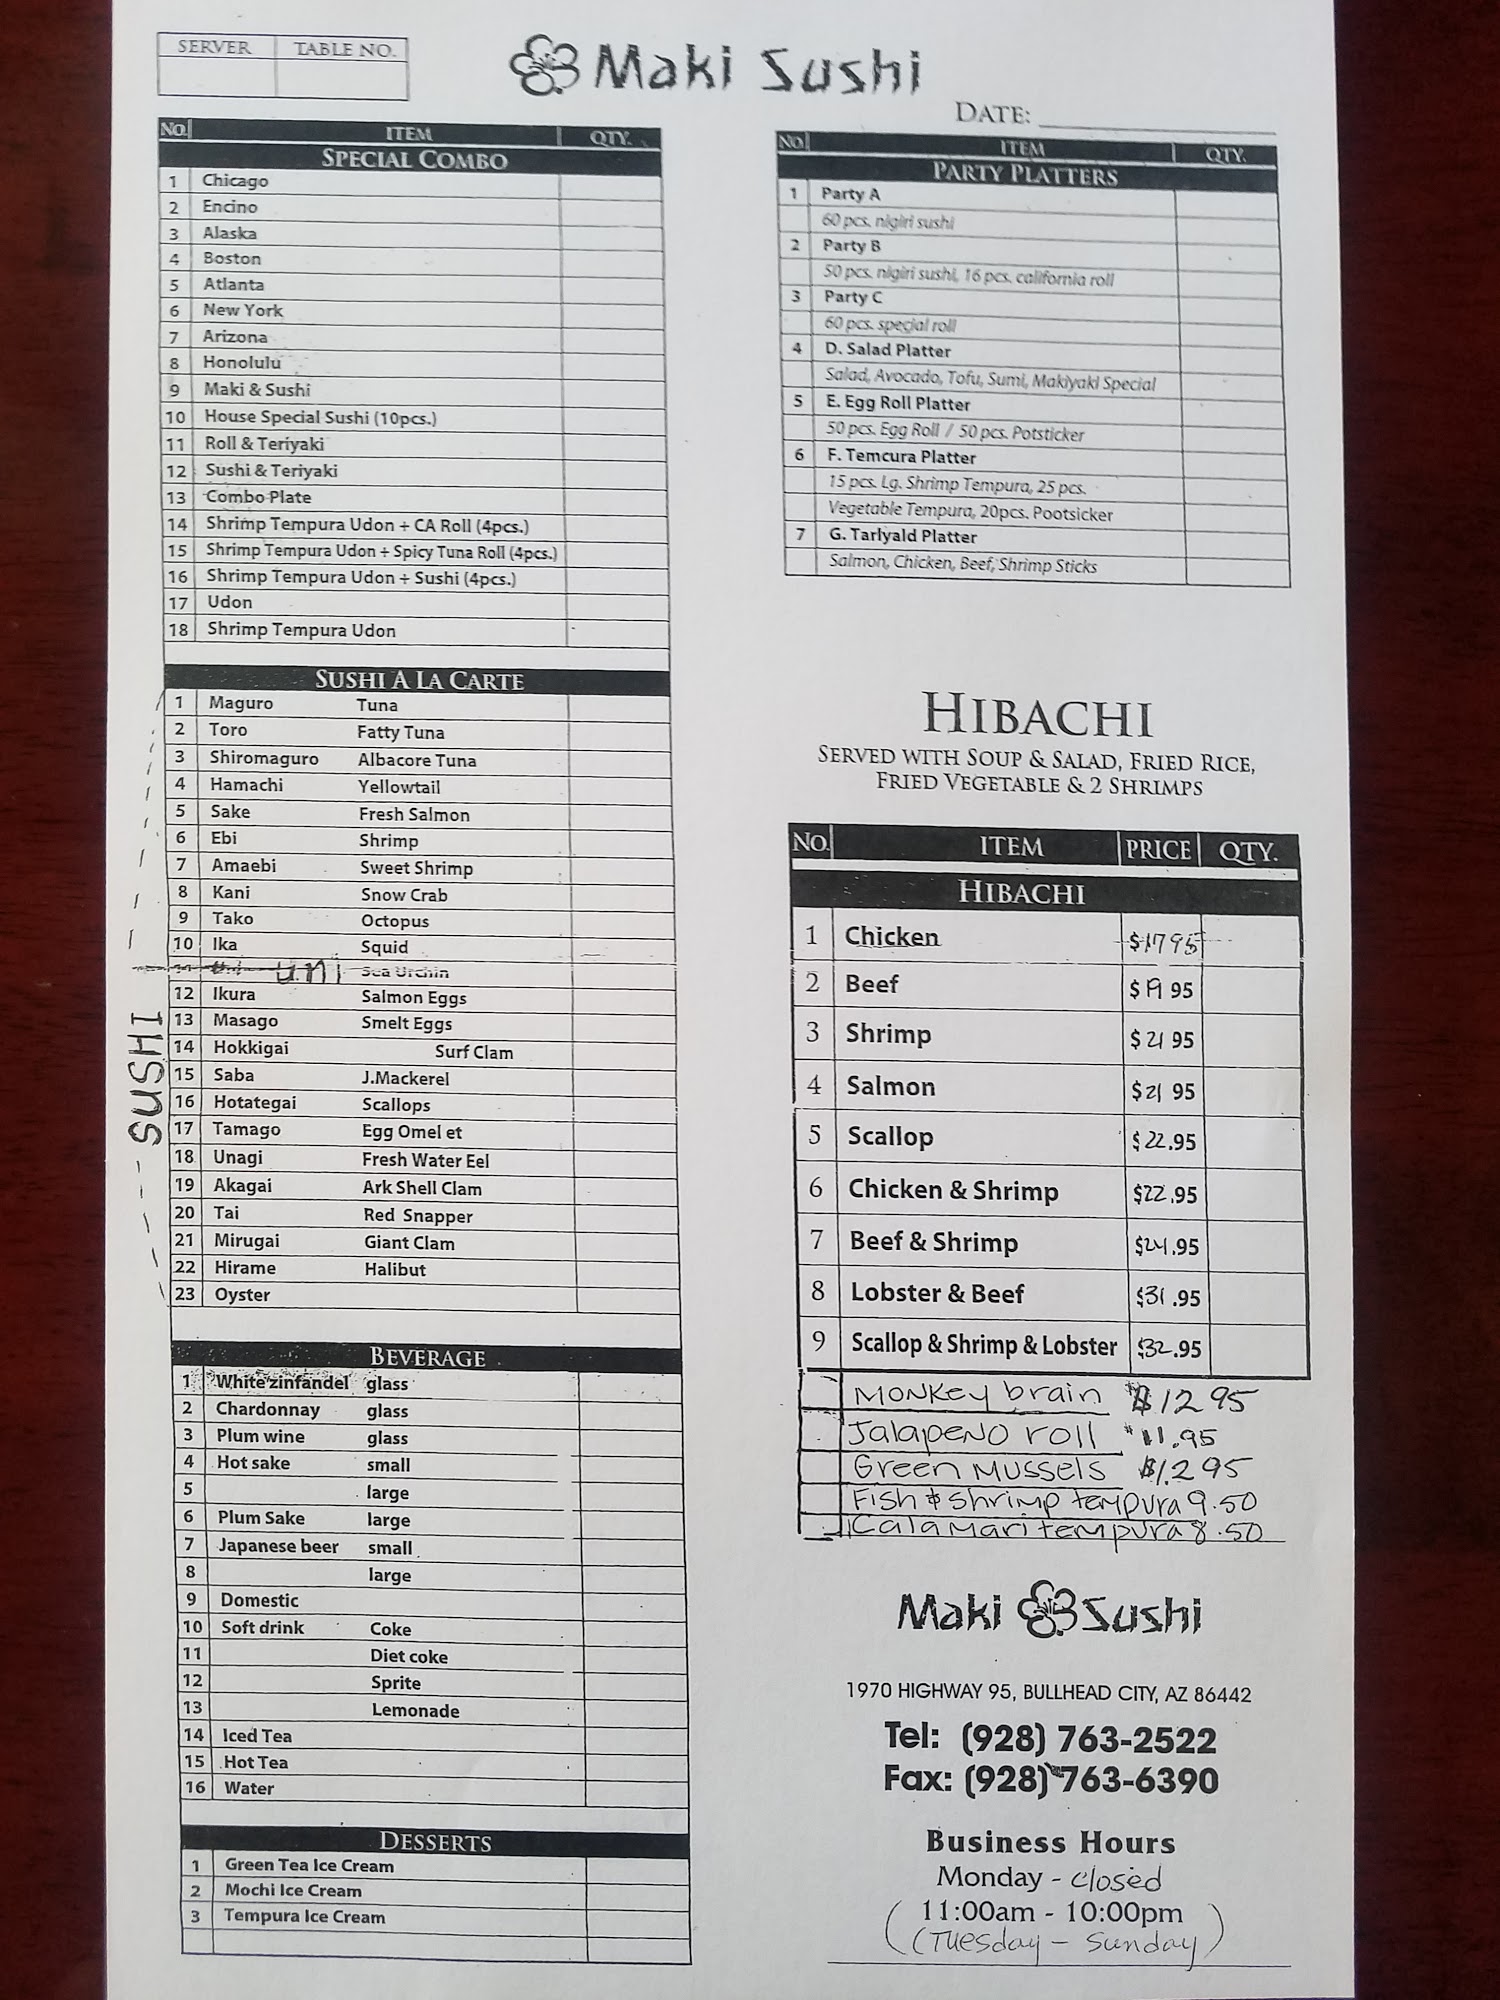 SERVER TABLE NO.
Maki Sushi
DATE:
NO. ITEM QTY.
SPECIAL COMBO
1 Chicago
2 Encino
3 Alaska
4 Boston
5 Atlanta
6 New York
7 Arizona
8 Honolulu
9 Maki & Sushi
10 House Special Sushi (10pcs.)
11 Roll & Teriyaki
12 Sushi & Teriyaki
13 Combo Plate
14 Shrimp Tempura Udon + CA Roll (4pcs.)
15 Shrimp Tempura Udon + Spicy Tuna Roll (4pcs.)
16 Shrimp Tempura Udon + Sushi (4pcs.)
17 Udon
18 Shrimp Tempura Udon
SUSHI A LA CARTE
SUSHI
1 Maguro Tuna
2 Toro Fatty Tuna
3 Shiromaguro Albacore Tuna
4 Hamachi Yellowtail
5 Sake Fresh Salmon
6 Ebi Shrimp
7 Amaebi Sweet Shrimp
8 Kani Snow Crab
9 Tako Octopus
10 Ika Squid
uni Sea Urchin
12 Ikura Salmon Eggs
13 Masago Smelt Eggs
14 Hokkigai Surf Clam
15 Saba J.Mackerel
16 Hotategai Scallops
17 Tamago Egg Omel et
18 Unagi Fresh Water Eel
19 Akagai Ark Shell Clam
20 Tai Red Snapper
21 Mirugai Giant Clam
22 Hirame Halibut
23 Oyster
BEVERAGE
1 White zinfandel glass
2 Chardonnay glass
3 Plum wine glass
4 Hot sake small
5 large
6 Plum Sake large
7 Japanese beer small
8 large
9 Domestic
10 Soft drink Coke
11 Diet coke
12 Sprite
13 Lemonade
14 Iced Tea
15 Hot Tea
16 Water
DESSERTS
1 Green Tea Ice Cream
2 Mochi Ice Cream
3 Tempura Ice Cream
NO. ITEM QTY.
PARTY PLATTERS
1 Party A
60 pcs. nigiri sushi
2 Party B
50 pcs. nigiri sushi, 16 pcs. california roll
3 Party C
60 pcs. special roll
4 D. Salad Platter
Salad, Avocado, Tofu, Sumi, Makiyaki Special
5 E. Egg Roll Platter
50 pcs. Egg Roll / 50 pcs. Potsticker
6 F. Temcura Platter
15 pcs. Lg. Shrimp Tempura, 25 pcs.
Vegetable Tempura, 20pcs. Pootsicker
7 G. Tarlyald Platter
Salmon, Chicken, Beef, Shrimp Sticks
HIBACHI
SERVED WITH SOUP & SALAD, FRIED RICE,
FRIED VEGETABLE & 2 SHRIMPS
NO. ITEM PRICE QTY.
HIBACHI
1 Chicken $17 95
2 Beef $19 95
3 Shrimp $21 95
4 Salmon $21 95
5 Scallop $22.95
6 Chicken & Shrimp $22.95
7 Beef & Shrimp $24.95
8 Lobster & Beef $31.95
9 Scallop & Shrimp & Lobster $32.95
MONKey brain $12 95
Jalapeno roll $11.95
Green Mussels $12 95
Fish & shrimp tempura 9.50
Calamari tempura 8.50
Maki Sushi
1970 HIGHWAY 95, BULLHEAD CITY, AZ 86442
Tel: (928) 763-2522
Fax: (928) 763-6390
Business Hours
Monday - closed
11:00am - 10:00pm
(Tuesday - Sunday)